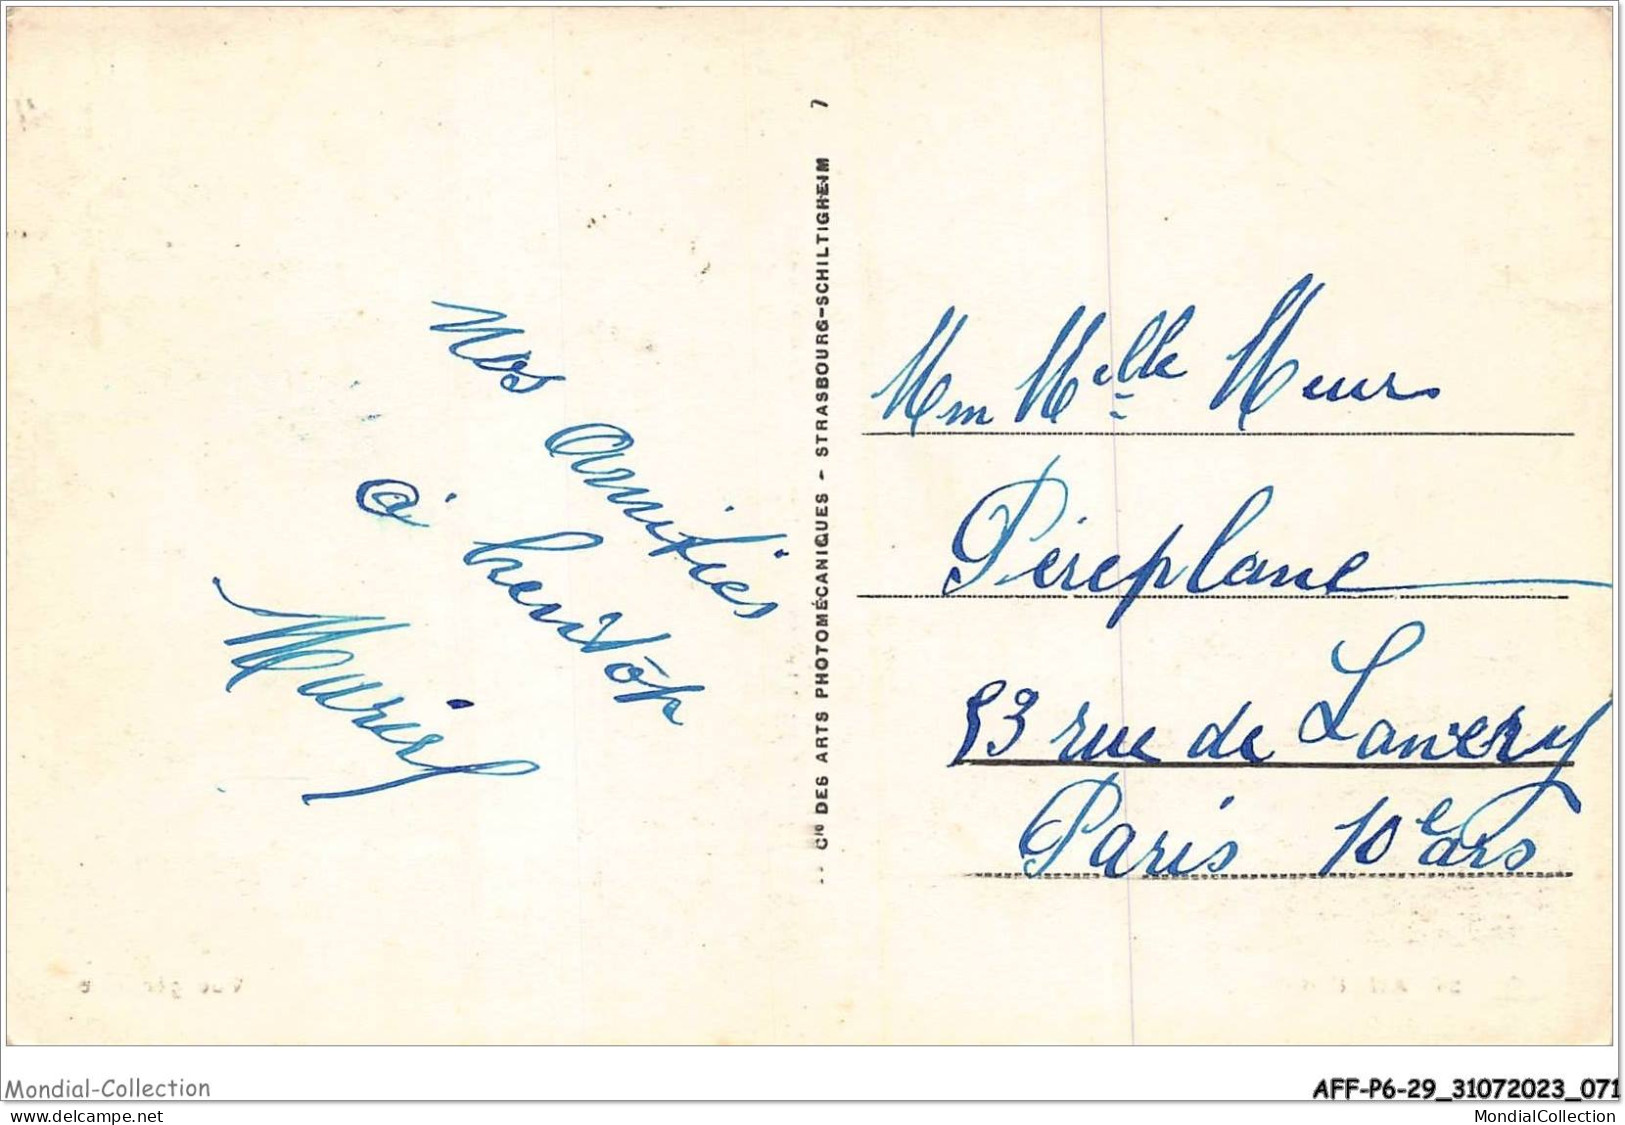 Nos amitiés
à
Cie DES ARTS PHOTOMÉCANIQUES - STRASBOURG-SCHILTIGHEIM 7
Mm Melle Meurs
Péréplane
83 rue de Lancry
Paris 10e ars
Mondial-Collection
www.delcampe.net
AFF-P6-29_31072023_071
MondialCollection